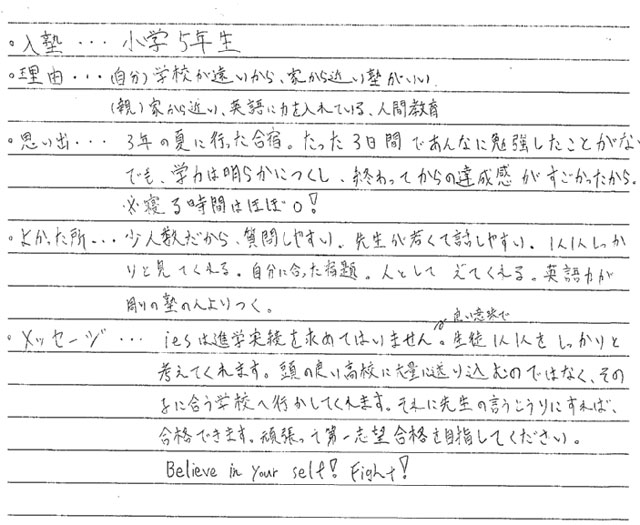 。入塾・・・小学5年生
。理由・・・(自分)学校が遠いから、家から近い塾がいい
(親)家から近い、英語に力を入れている、人間教育
。思い出・・・3年の夏に行った合宿。たった3日間であんなに勉強したことがない
でも、学力は明らかにつくし、終わってからの達成感がすごかったから。
※寝る時間はほぼ0!
。よかった所・・・少人数だから、質問しやすい。先生が若くて話しやすい。1人1人しっか
りと見てくれる。自分に合った宿題。人として 見てくれる。英語力が
別の塾の人よりつく。
良い意味で
。メッセージ・・・iesは進学実績を求めてはいません。生徒1人1人をしっかりと
考えてくれます。頭の良い高校に大量に送り込むのではなく、その
子に合う学校へ行かしてくれます。それに先生の言うとうりにすれば、
合格できます。頑張って第一志望合格を目指してください。
Believe in Your self! Fight!